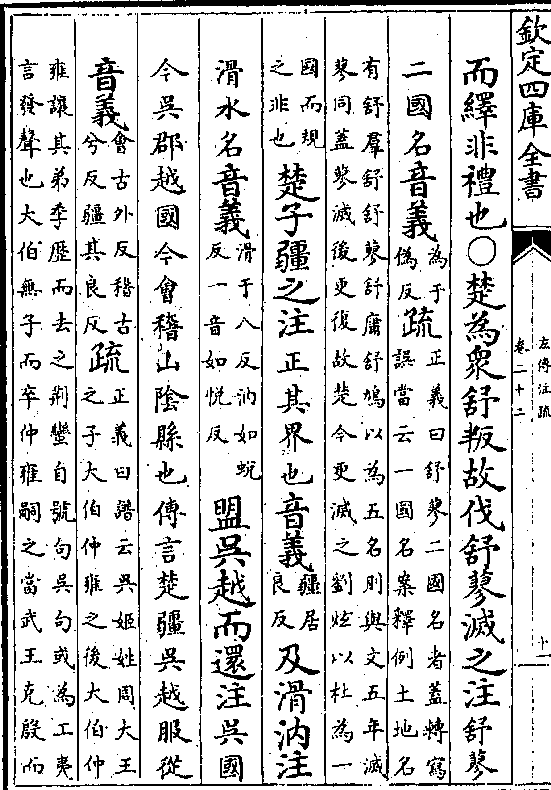 欽定四庫全書
左傳注疏
卷二十二
十一
而繹非禮也○楚為衆舒叛故伐舒蓼滅之注舒蓼
二國名音義為于偽反疏正義曰舒蓼二國名者蓋轉寫誤當云一國名案釋例土地名
有舒羣舒舒蓼舒庸舒鳩以為五名則與文五年滅蓼同蓋蓼滅後更復故楚今更滅之劉炫以杜為一
國而規之非也楚子疆之注正其界也音義疆居良反及滑汭注
滑水名音義滑于八反汭如蛻反一音如悅反盟吳越而還注吳國
今吳郡越國今會稽山陰縣也傳言楚疆吳越服從
音義會古外反稽古兮反疆其良反疏正義曰譜云吳姬姓周大王之子大伯仲雍之後大伯仲
雍讓其弟季歴而去之荆蠻自號句吳句或為工夷言發聲也大伯無子而卒仲雍嗣之當武王克殷而